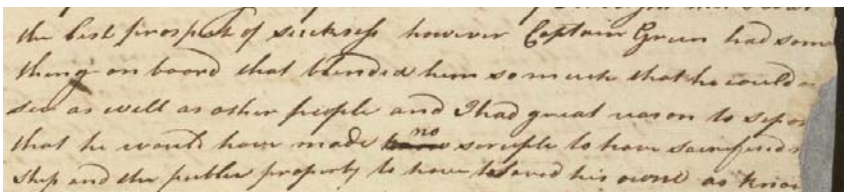 the best prospect of sucksess however Captain Green had some
thing on board that blended him so much that he could
see as well as other people and I had great reason to
that he would have made no scruple to have sacrefised
ship and the publec property to have saved his owne as